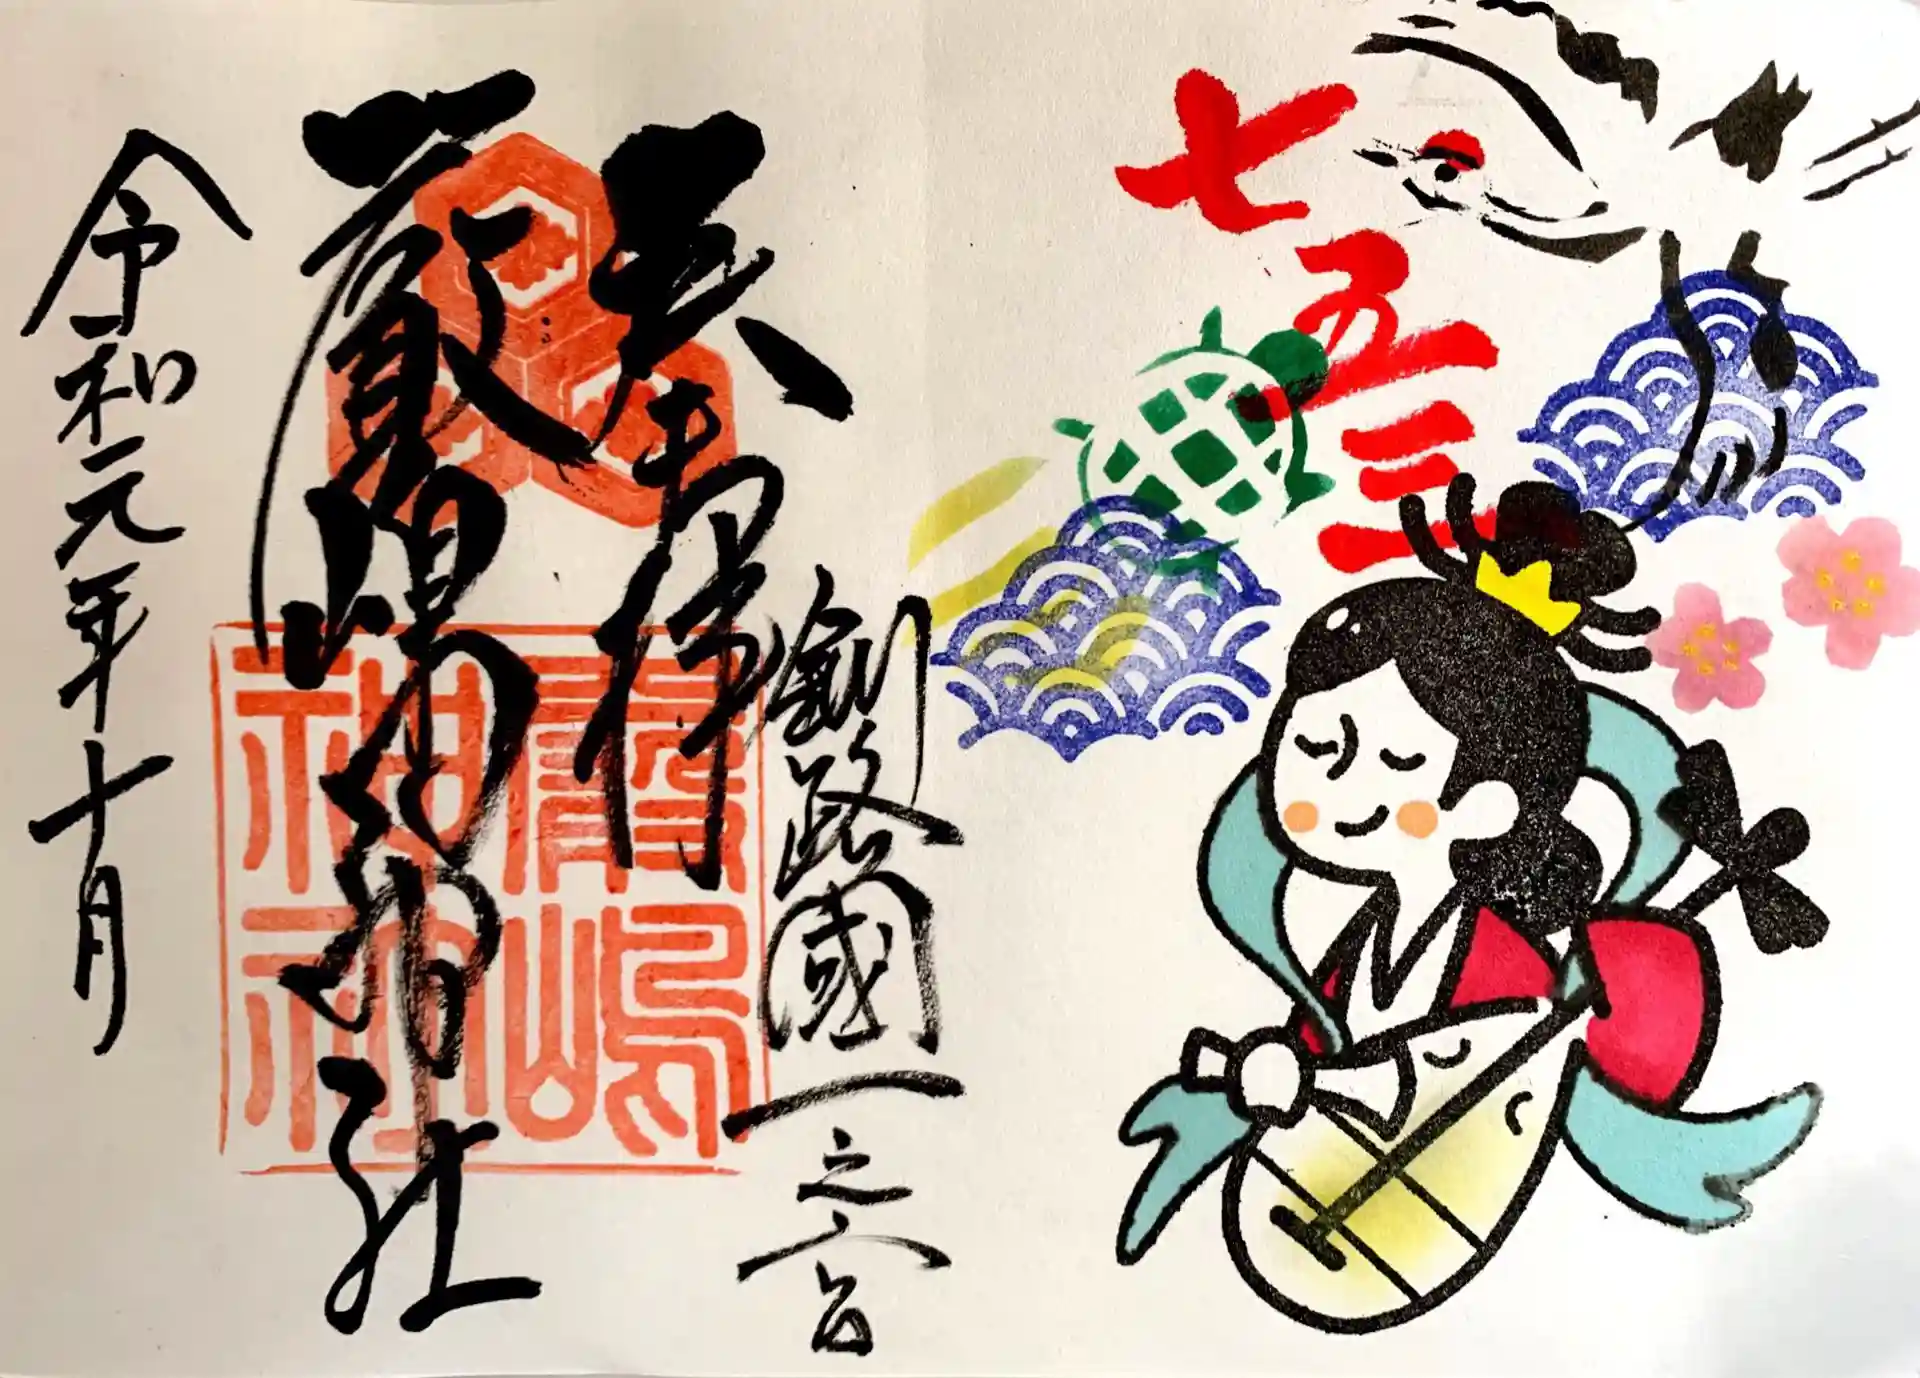 七五三
釧路國一之宮
奉拝
厳嶋神社
令和元年十月
嚴嶋神社